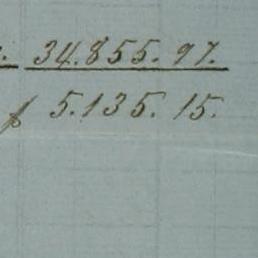 34.855.97.
f 5.135.15.